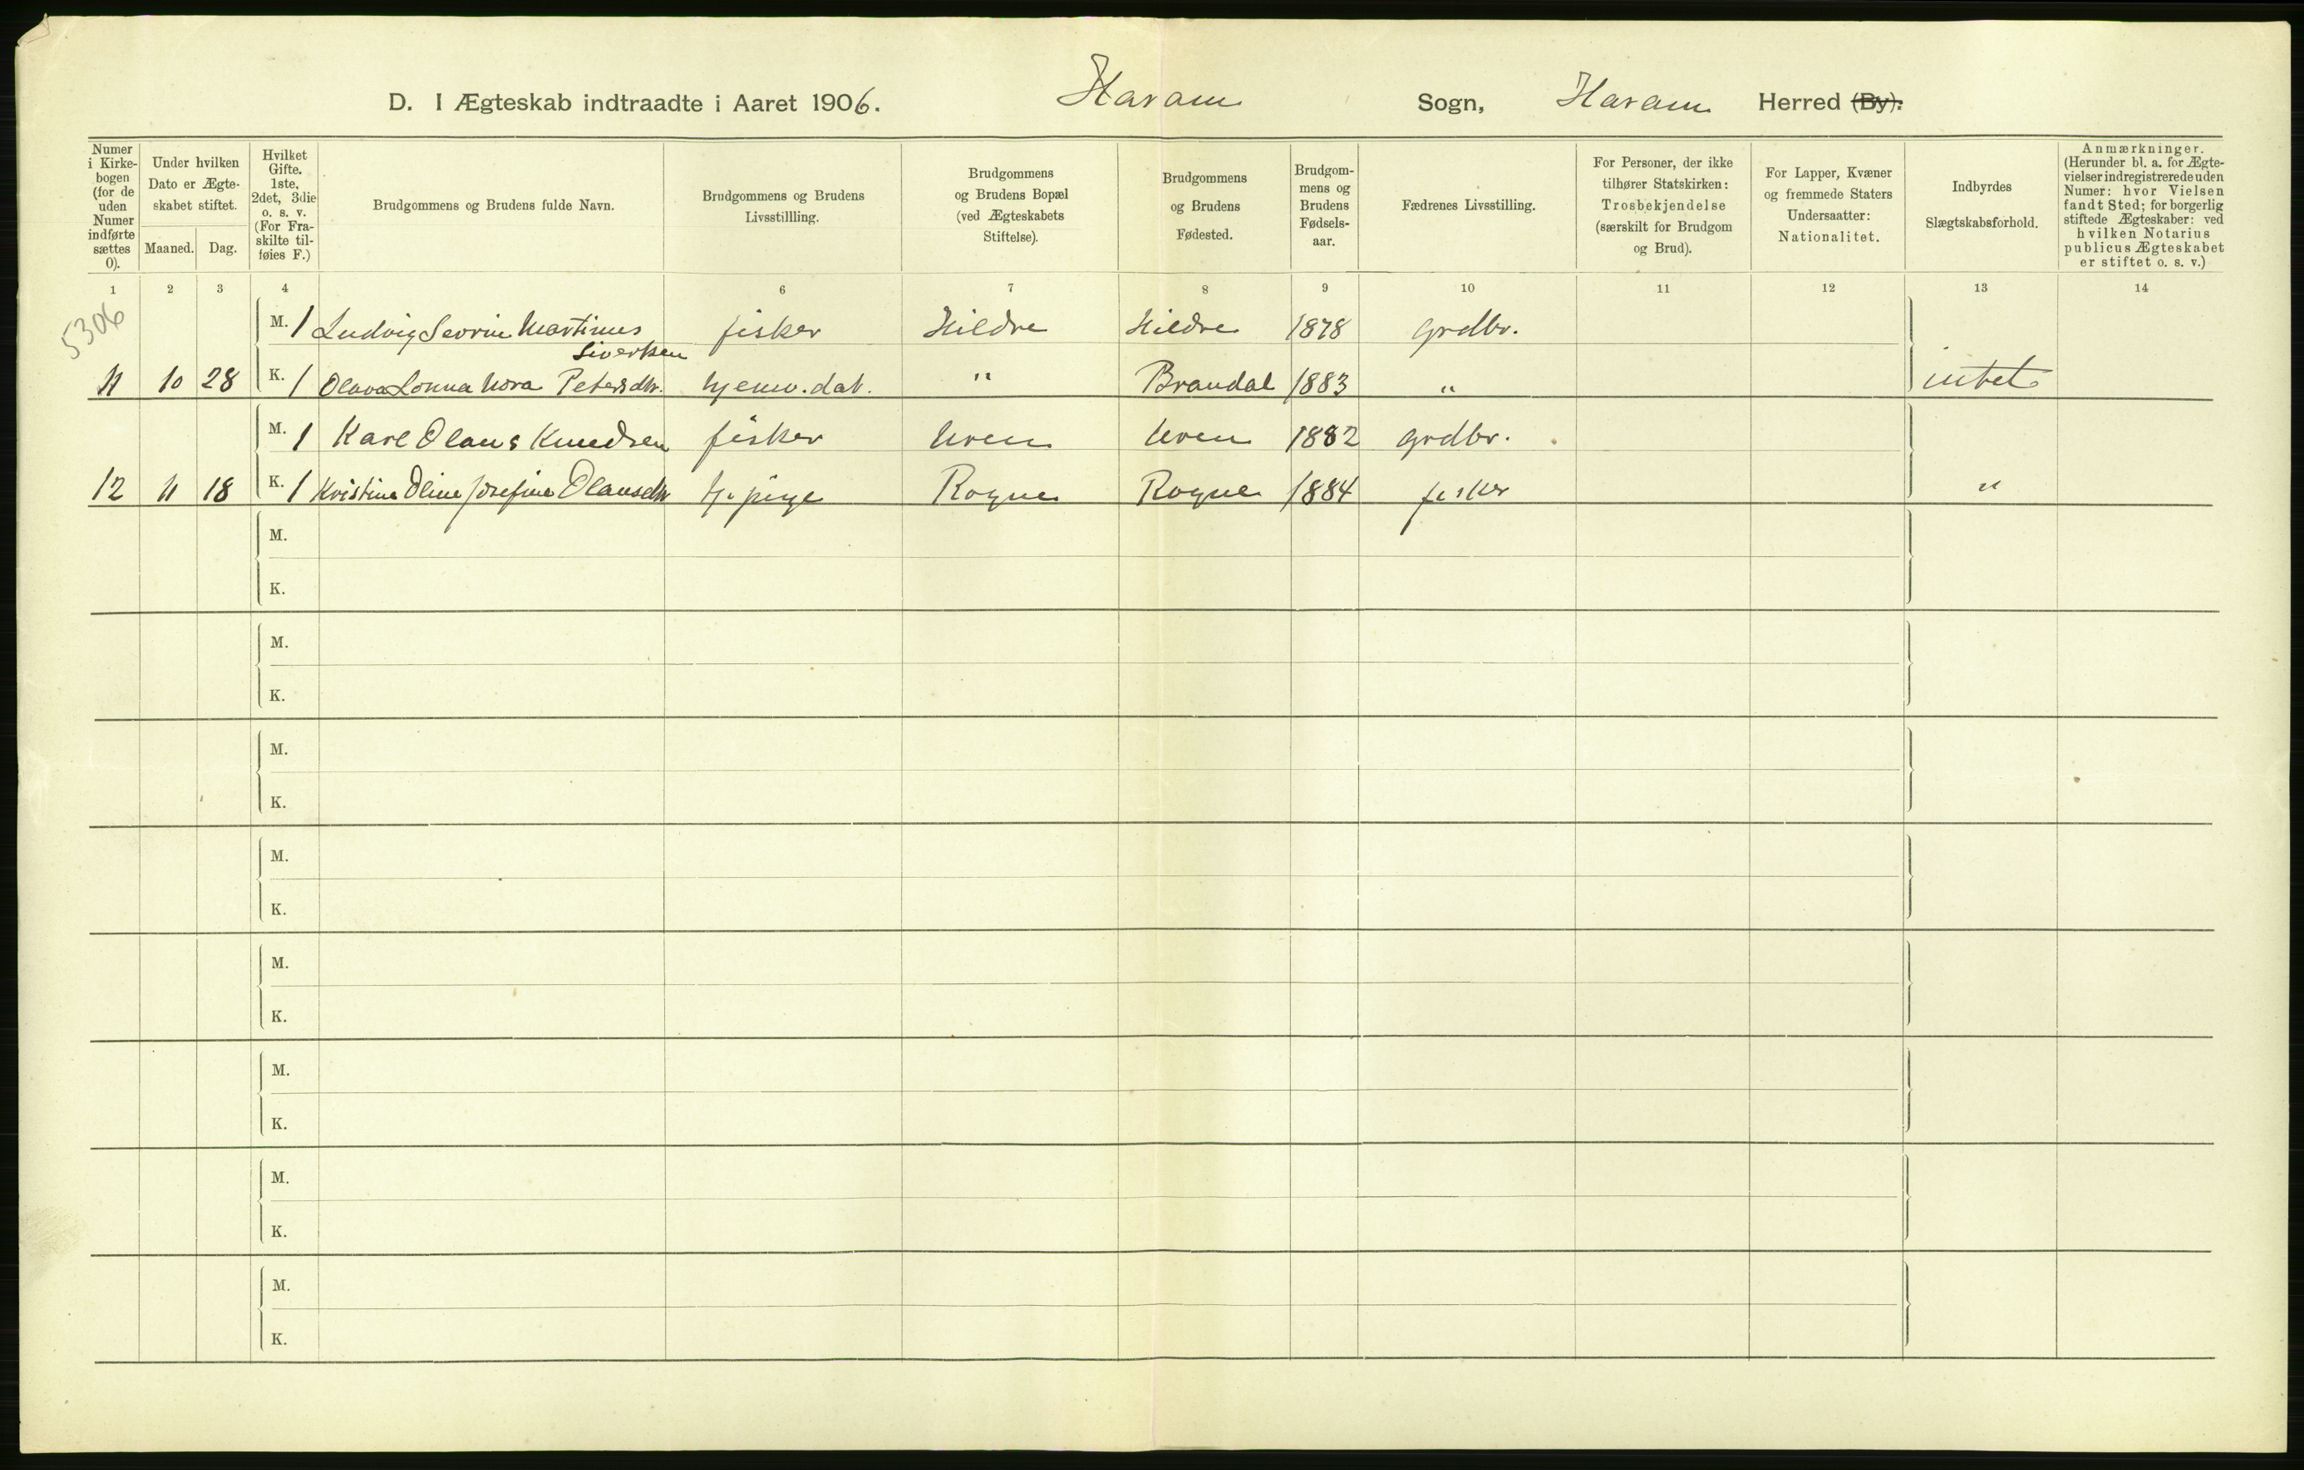 D. I Ægteskab indtraadte i Aaret 1906. Haram Sogn, Haram Herred (By).
Numer i Kirkebogen (for de uden Numer indførte sættes 0).
Under hvilken Dato er Ægteskabet stiftet.
Maaned. Dag.
Hvilket Gifte. 1ste, 2det, 3die o. s. v. (For Fraskilte tilføies F.)
Brudgommens og Brudens fulde Navn.
Brudgommens og Brudens Livsstillling.
Brudgommens og Brudens Bopæl (ved Ægteskabets Stiftelse).
Brudgommens og Brudens Fødested.
Brudgommens og Brudens Fødselsaar.
Fædrenes Livsstilling.
For Personer, der ikke tilhører Statskirken: Trosbekjendelse (særskilt for Brudgom og Brud).
For Lapper, Kvæner og fremmede Staters Undersaatter: Nationalitet.
Indbyrdes Slægtskabsforhold.
Anmærkninger. (Herunder bl. a. for Ægtevielser indregistrerede uden Numer: hvor Vielsen fandt Sted; for borgerlig stiftede Ægteskaber: ved hvilken Notarius publicus Ægteskabet er stiftet o. s. v.)
1 2 3 4 6 7 8 9 10 11 12 13 14
5306
M. 1 Ludvig Sevrin Martinus Siversen fisker Hildre Hildre 1878 grdbr.
11 10 28 K. 1 Olava Lovina Nora Petersdtr. hjemv. dat. " Brandal 1883 " intet
M. 1 Karl Olaus Knudsen fisker Uren Uren 1882 grdbr.
12 11 18 K. 1 Kristine Oline Josefine Olausdtr tj. pige Rogne Rogne 1884 fisker "
M.
K.
M.
K.
M.
K.
M.
K.
M.
K.
M.
K.
M.
K.
M.
K.